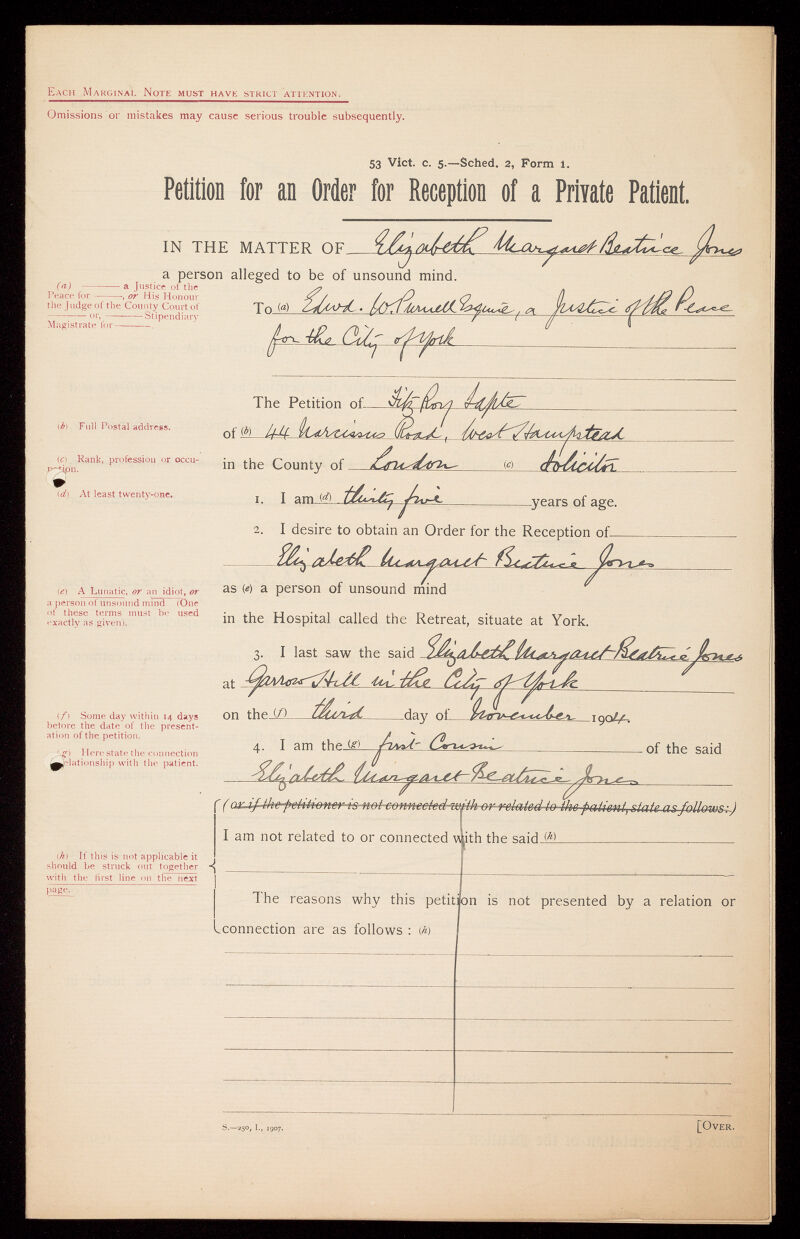 EACH MARGINAL NOTE MUST HAVE STRICT ATTENTION.
Omissions or mistakes may cause serious trouble subsequently.
53 Vict. c. 5.—Sched. 2, Form 1.
Petition for an Order for Reception of a Private Patient.
IN THE MATTER OF Elizabeth Margaret Beatrice Jones
a person alleged to be of unsound mind.
(a) ——— a Justice of the
Peace for ———, or His Honour
the Judge of the County Court of
——— or, ——— Stipendiary
Magistrate for ———.
To (a) Edwd. W. Purnell Esquire, a Justice of the Peace
for the City of York
The Petition of FitzRoy
(b) Full Postal address.
of (b) 44 Narcissus Road, West Hampstead
(c) Rank, profession or occu-
pation.
in the County of London (c) Solicitor
(d) At least twenty-one.
1. I am (d) thirty five years of age.
2. I desire to obtain an Order for the Reception of
Elizabeth Margaret Beatrice Jones
(e) A Lunatic, or an idiot, or
a person of unsound mind (One
of these terms must be used
exactly as given).
as (e) a person of unsound mind
in the Hospital called the Retreat, situate at York.
3. I last saw the said Elizabeth Margaret Beatrice Jones
at Garrow Hill in the City of York
(f) Some day within 14 days
before the date of the present-
ation of the petition.
on the (f) third day of November 1904.
(g) Here state the connection
relationship with the patient.
4. I am the (g) first Cousin of the said
Elizabeth Margaret Beatrice Jones
(or if the petitioner is not connected with or related to the patient, state as follows:)
I am not related to or connected with the said (h)
(h) If this is not applicable it
should be struck out together
with the first line on the next
page.
The reasons why this petition is not presented by a relation or
connection are as follows : (h)
S.—250, I., 1907.
[OVER.